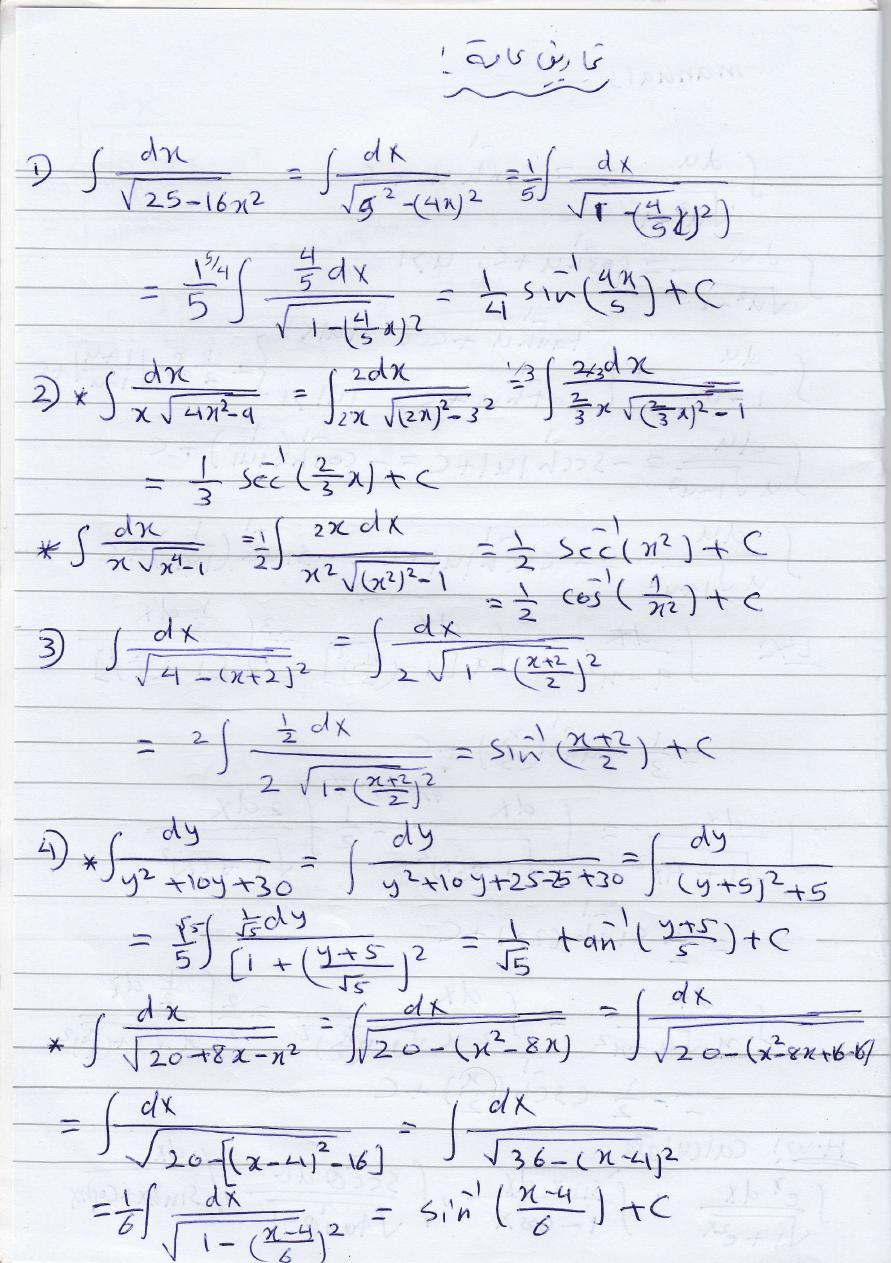 تمارين عامة :
1) ∫ dx / √(25-16x²) = ∫ dx / √(5²-(4x)²) = 1/5 ∫ dx / √(1-(4/5 x)²)
= 1/5 · 5/4 ∫ 4/5 dx / √(1-(4/5 x)²) = 1/4 sin⁻¹(4x/5) + C
2) * ∫ dx / x√(4x²-9) = ∫ 2dx / 2x√((2x)²-3²) = 1/3 ∫ 2/3 dx / (2/3 x √((2/3 x)²-1))
= 1/3 sec⁻¹(2/3 x) + C
* ∫ dx / x√(x⁴-1) = 1/2 ∫ 2x dx / x²√((x²)²-1) = 1/2 sec⁻¹(x²) + C
= 1/2 cos⁻¹(1/x²) + C
3) ∫ dx / √(4-(x+2)²) = ∫ dx / 2√(1-((x+2)/2)²)
= 2 ∫ 1/2 dx / 2√(1-((x+2)/2)²) = sin⁻¹((x+2)/2) + C
4) * ∫ dy / y²+10y+30 = ∫ dy / y²+10y+25-25+30 = ∫ dy / (y+5)²+5
= √5/5 ∫ 1/√5 dy / [1+((y+5)/√5)² = 1/√5 tan⁻¹((y+5)/5) + C
* ∫ dx / √(20+8x-x²) = ∫ dx / √(20-(x²-8x)) = ∫ dx / √(20-(x²-8x+16-16))
= ∫ dx / √(20-[(x-4)²-16]) = ∫ dx / √(36-(x-4)²)
= 1/6 ∫ dx / √(1-((x-4)/6)²) = sin⁻¹((x-4)/6) + C